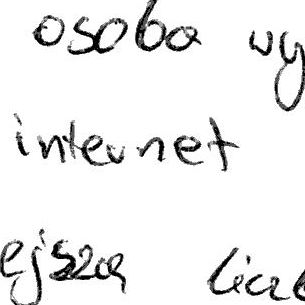 osoba wy
internet
ejszą licz